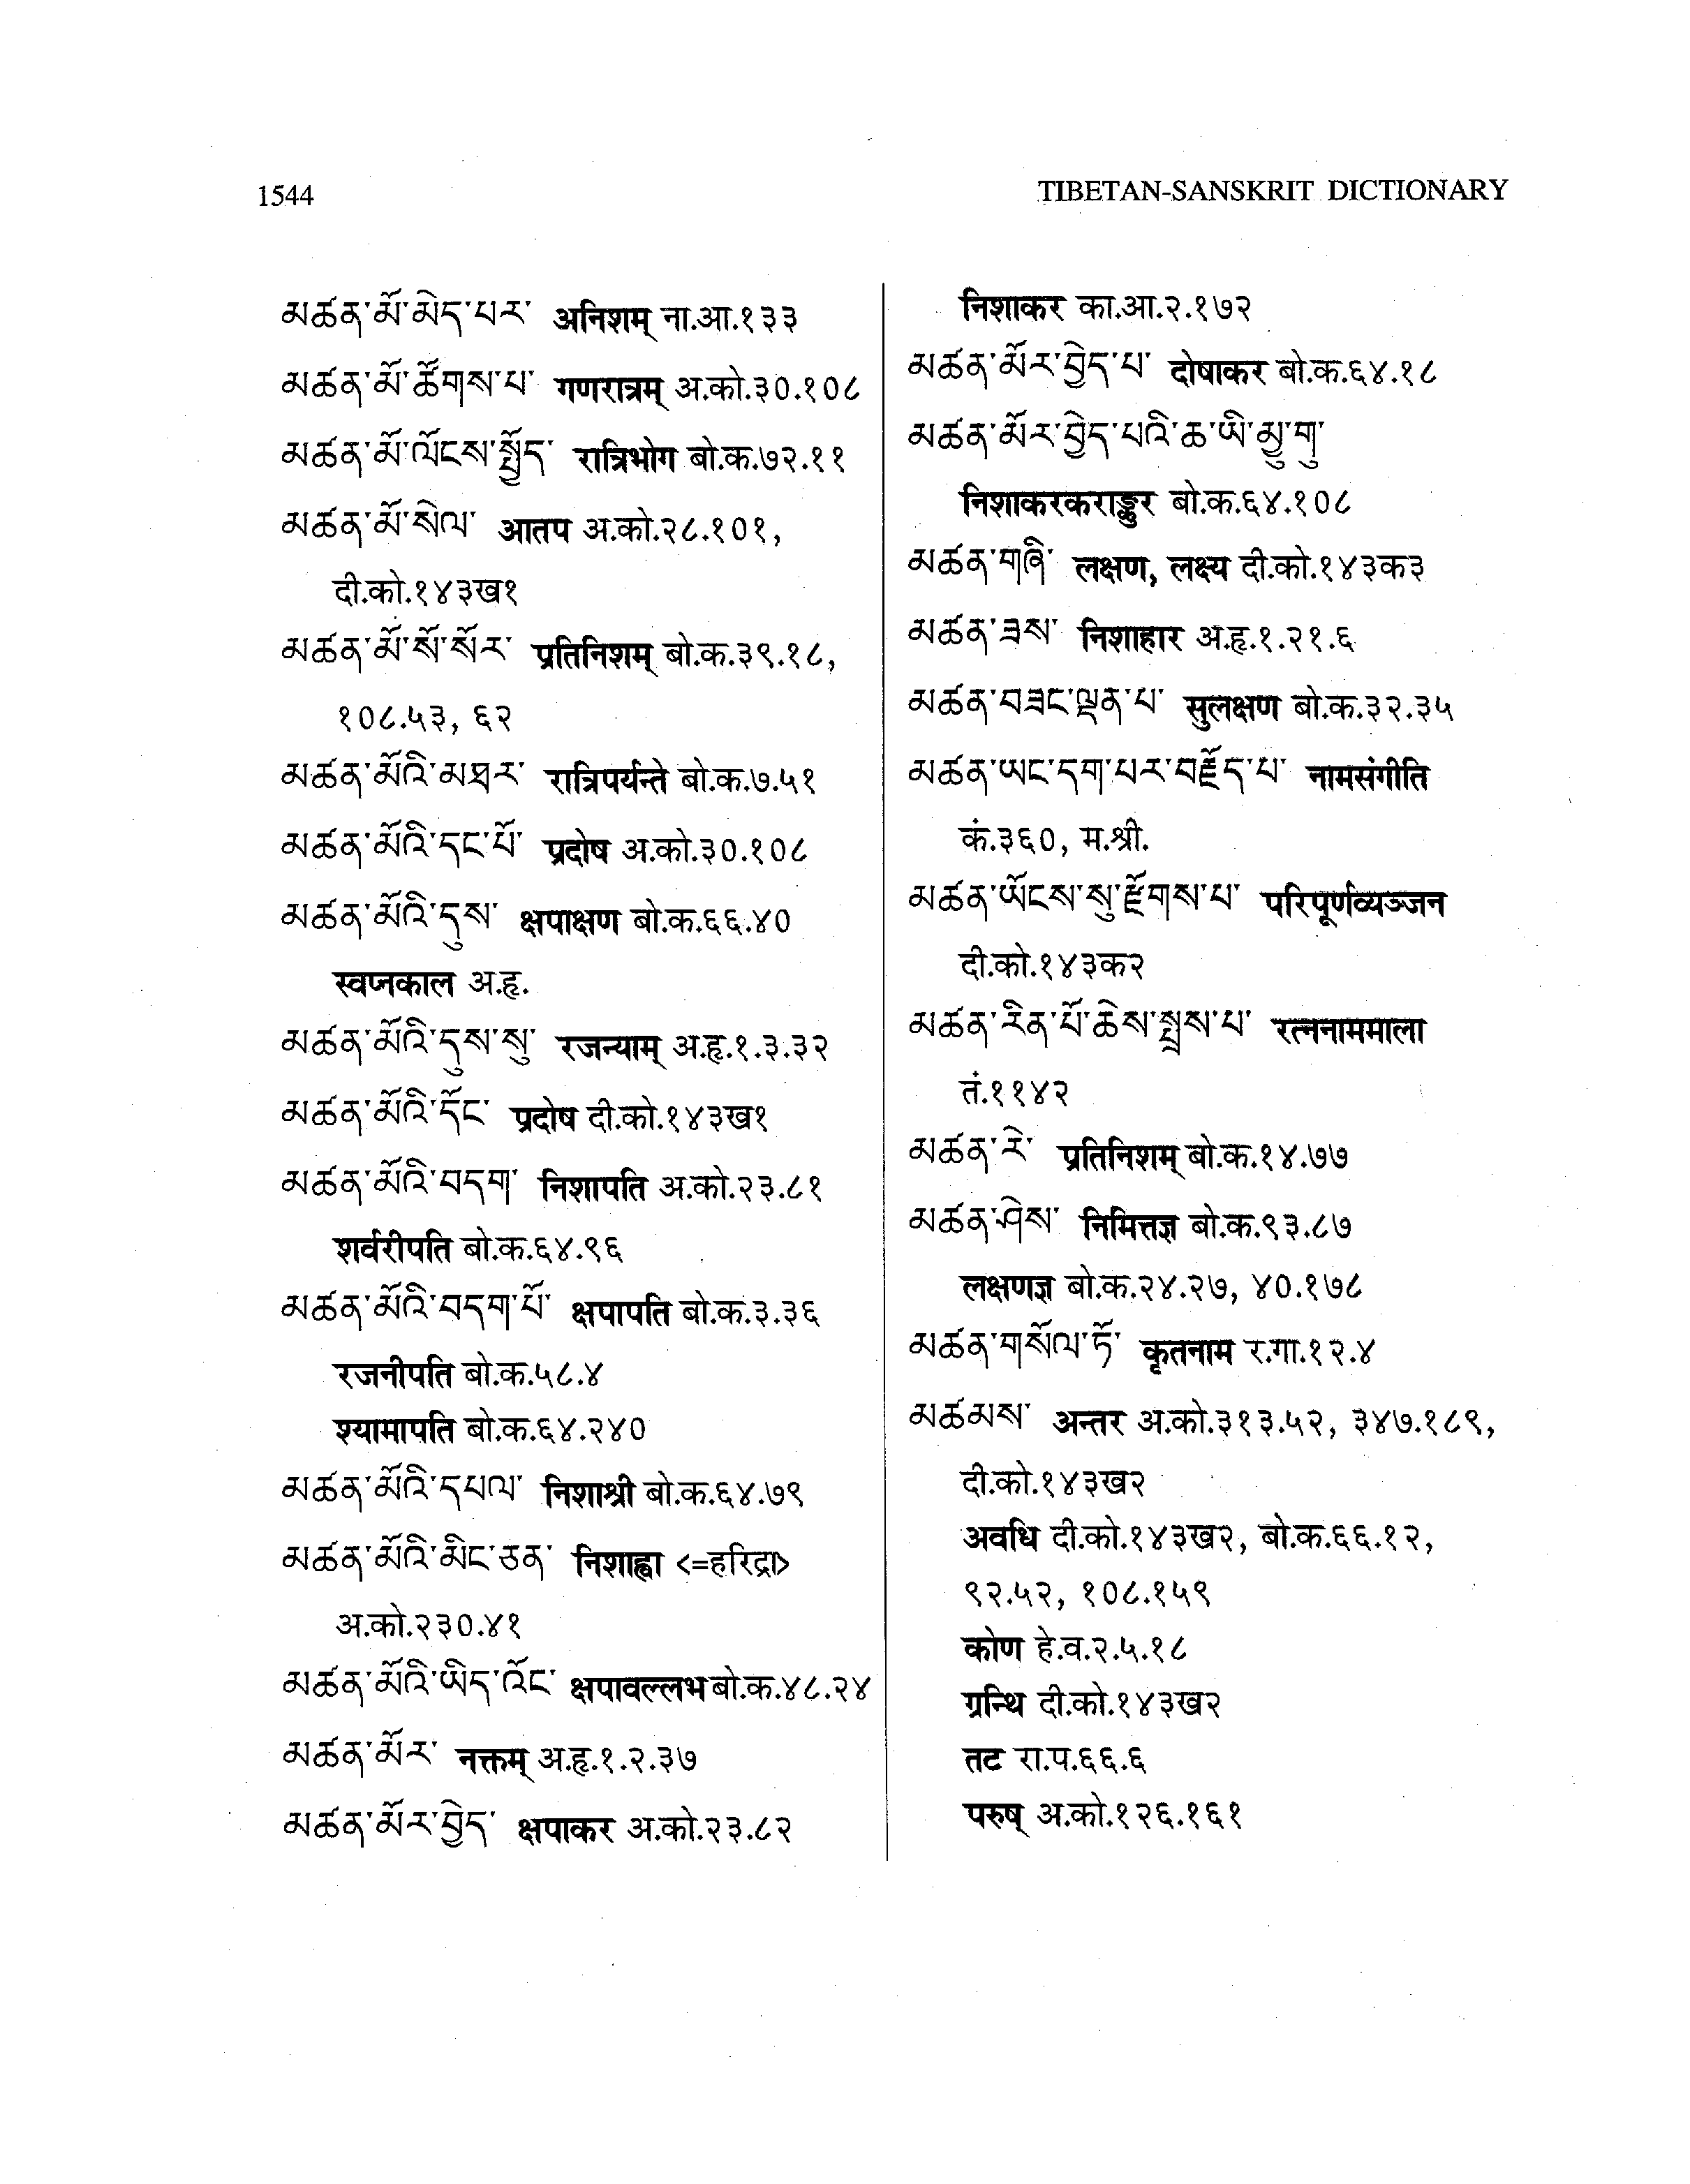 1544
TIBETAN-SANSKRIT DICTIONARY
མཚན་མོ་མེད་པར་ अनिशम् ना.आ.१३३
མཚན་མོ་ཚོགས་པ་ गणरात्रम् अ.को.३०.१०८
མཚན་མོ་ལོངས་སྤྱོད་ रात्रिभोग बो.क.७२.११
མཚན་མོ་སེལ་ आतप अ.को.२८.१०१,
दी.को.१४३ख१
མཚན་མོ་སོ་སོར་ प्रतिनिशम् बो.क.३९.१८,
१०८.५३, ६२
མཚན་མོའི་མཐར་ रात्रिपर्यन्ते बो.क.७.५१
མཚན་མོའི་དང་པོ་ प्रदोष अ.को.३०.१०८
མཚན་མོའི་དུས་ क्षपाक्षण बो.क.६६.४०
स्वप्नकाल अ.हृ.
མཚན་མོའི་དུས་སུ་ रजन्याम् अ.हृ.१.३.३२
མཚན་མོའི་དོང་ प्रदोष दी.को.१४३ख१
མཚན་མོའི་བདག་ निशापति अ.को.२३.८१
शर्वरीपति बो.क.६४.९६
མཚན་མོའི་བདག་པོ་ क्षपापति बो.क.३.३६
रजनीपति बो.क.५८.४
श्यामापति बो.क.६४.२४०
མཚན་མོའི་དཔལ་ निशाश्री बो.क.६४.७९
མཚན་མོའི་མིང་ཅན་ निशाह्वा <=हरिद्रा>
अ.को.२३०.४१
མཚན་མོའི་ཡིད་འོང་ क्षपावल्लभ बो.क.४८.२४
མཚན་མོར་ नक्तम् अ.हृ.१.२.३७
མཚན་མོར་བྱེད་ क्षपाकर अ.को.२३.८२
निशाकर का.आ.२.१७२
མཚན་མོར་བྱེད་པ་ दोषाकर बो.क.६४.१८
མཚན་མོར་བྱེད་པའི་ཆ་ཡི་མྱུ་གུ་
निशाकरकराङ्कुर बो.क.६४.१०८
མཚན་གཞི་ लक्षण, लक्ष्य दी.को.१४३क३
མཚན་ཟས་ निशाहार अ.हृ.१.२१.६
མཚན་བཟང་ལྡན་པ་ सुलक्षण बो.क.३२.३५
མཚན་ཡང་དག་པར་བརྗོད་པ་ नामसंगीति
कं.३६०, म.श्री.
མཚན་ཡོངས་སུ་རྫོགས་པ་ परिपूर्णव्यञ्जन
दी.को.१४३क२
མཚན་རིན་པོ་ཆེས་སྤྲས་པ་ रत्ननाममाला
तं.११४२
མཚན་རེ་ प्रतिनिशम् बो.क.१४.७७
མཚན་ཤེས་ निमित्तज्ञ बो.क.९३.८७
लक्षणज्ञ बो.क.२४.२७, ४०.१७८
མཚན་གསོལ་ཏོ་ कृतनाम र.गा.१२.४
མཚམས་ अन्तर अ.को.३१३.५२, ३४७.१८९,
दी.को.१४३ख२
अवधि दी.को.१४३ख२, बो.क.६६.१२,
९२.५२, १०८.१५९
कोण हे.व.२.५.१८
ग्रन्थि दी.को.१४३ख२
तट रा.प.६६.६
परुष् अ.को.१२६.१६१